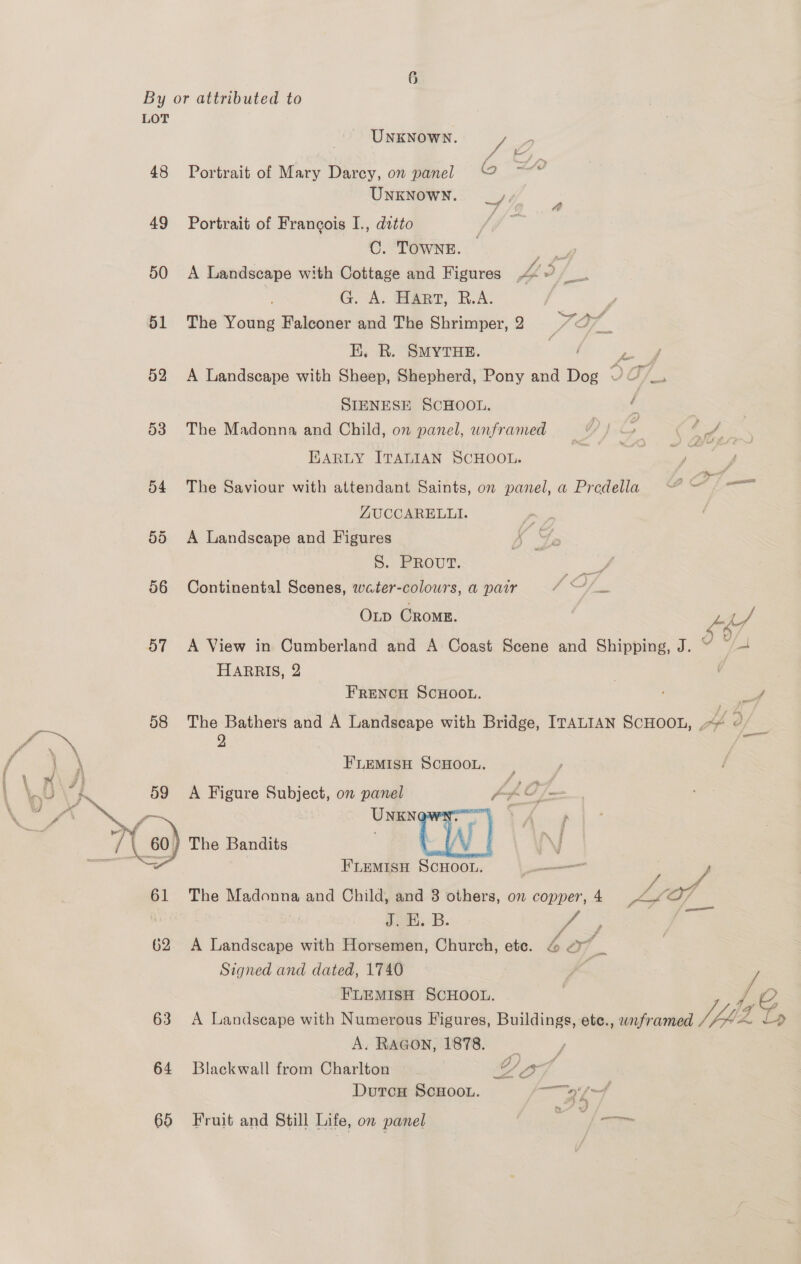 6
By or attributed to
LOT
UNKNOWN.
48 Portrait of Mary Darcy, on panel
UNKNOWN.
49 Portrait of François I., ditto
C. TOWNE.
50 A Landscape with Cottage and Figures
G. A. HART, R.A.
51 The Young Falconer and The Shrimper, 2
E. R. SMYTHE.
52 A Landscape with Sheep, Shepherd, Pony and Dog
SIENESE SCHOOL.
53 The Madonna and Child, on panel, unframed
EARLY ITALIAN SCHOOL.
54 The Saviour with attendant Saints, on panel, a Predella
ZUCCARELLI.
55 A Landscape and Figures
S. PROUT.
56 Continental Scenes, water-colours, a pair
OLD CROME.
57 A View in Cumberland and A Coast Scene and Shipping, J.
HARRIS, 2
FRENCH SCHOOL.
58 The Bathers and A Landscape with Bridge, ITALIAN SCHOOL,
2
FLEMISH SCHOOL.
59 A Figure Subject, on panel
UNKNOWN.
60 The Bandits
FLEMISH SCHOOL.
61 The Madonna and Child, and 3 others, on copper, 4
J. E. B.
62 A Landscape with Horsemen, Church, etc.
Signed and dated, 1740
FLEMISH SCHOOL.
63 A Landscape with Numerous Figures, Buildings, etc., unframed
A. RAGON, 1878.
64 Blackwall from Charlton
DUTCH SCHOOL.
65 Fruit and Still Life, on panel